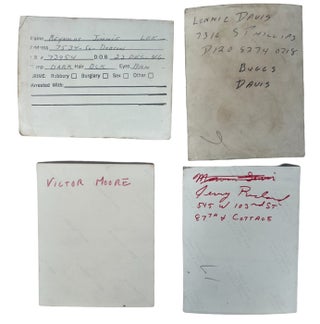 Name Reynolds Jimmie Lee
7534 So
73954 D.O.B. 23 Dec 46
DARK Hair BLK Eyes BRN
ISSUE: Robbery Burglary Sex Other
Arrested With:
LONNIE DAVIS
7316 S PHILLIPS
D120 5274 0718
BUGGS
DAVIS
VICTOR MOORE
Jerry
545 W 103rd ST
87TH & COTTAGE